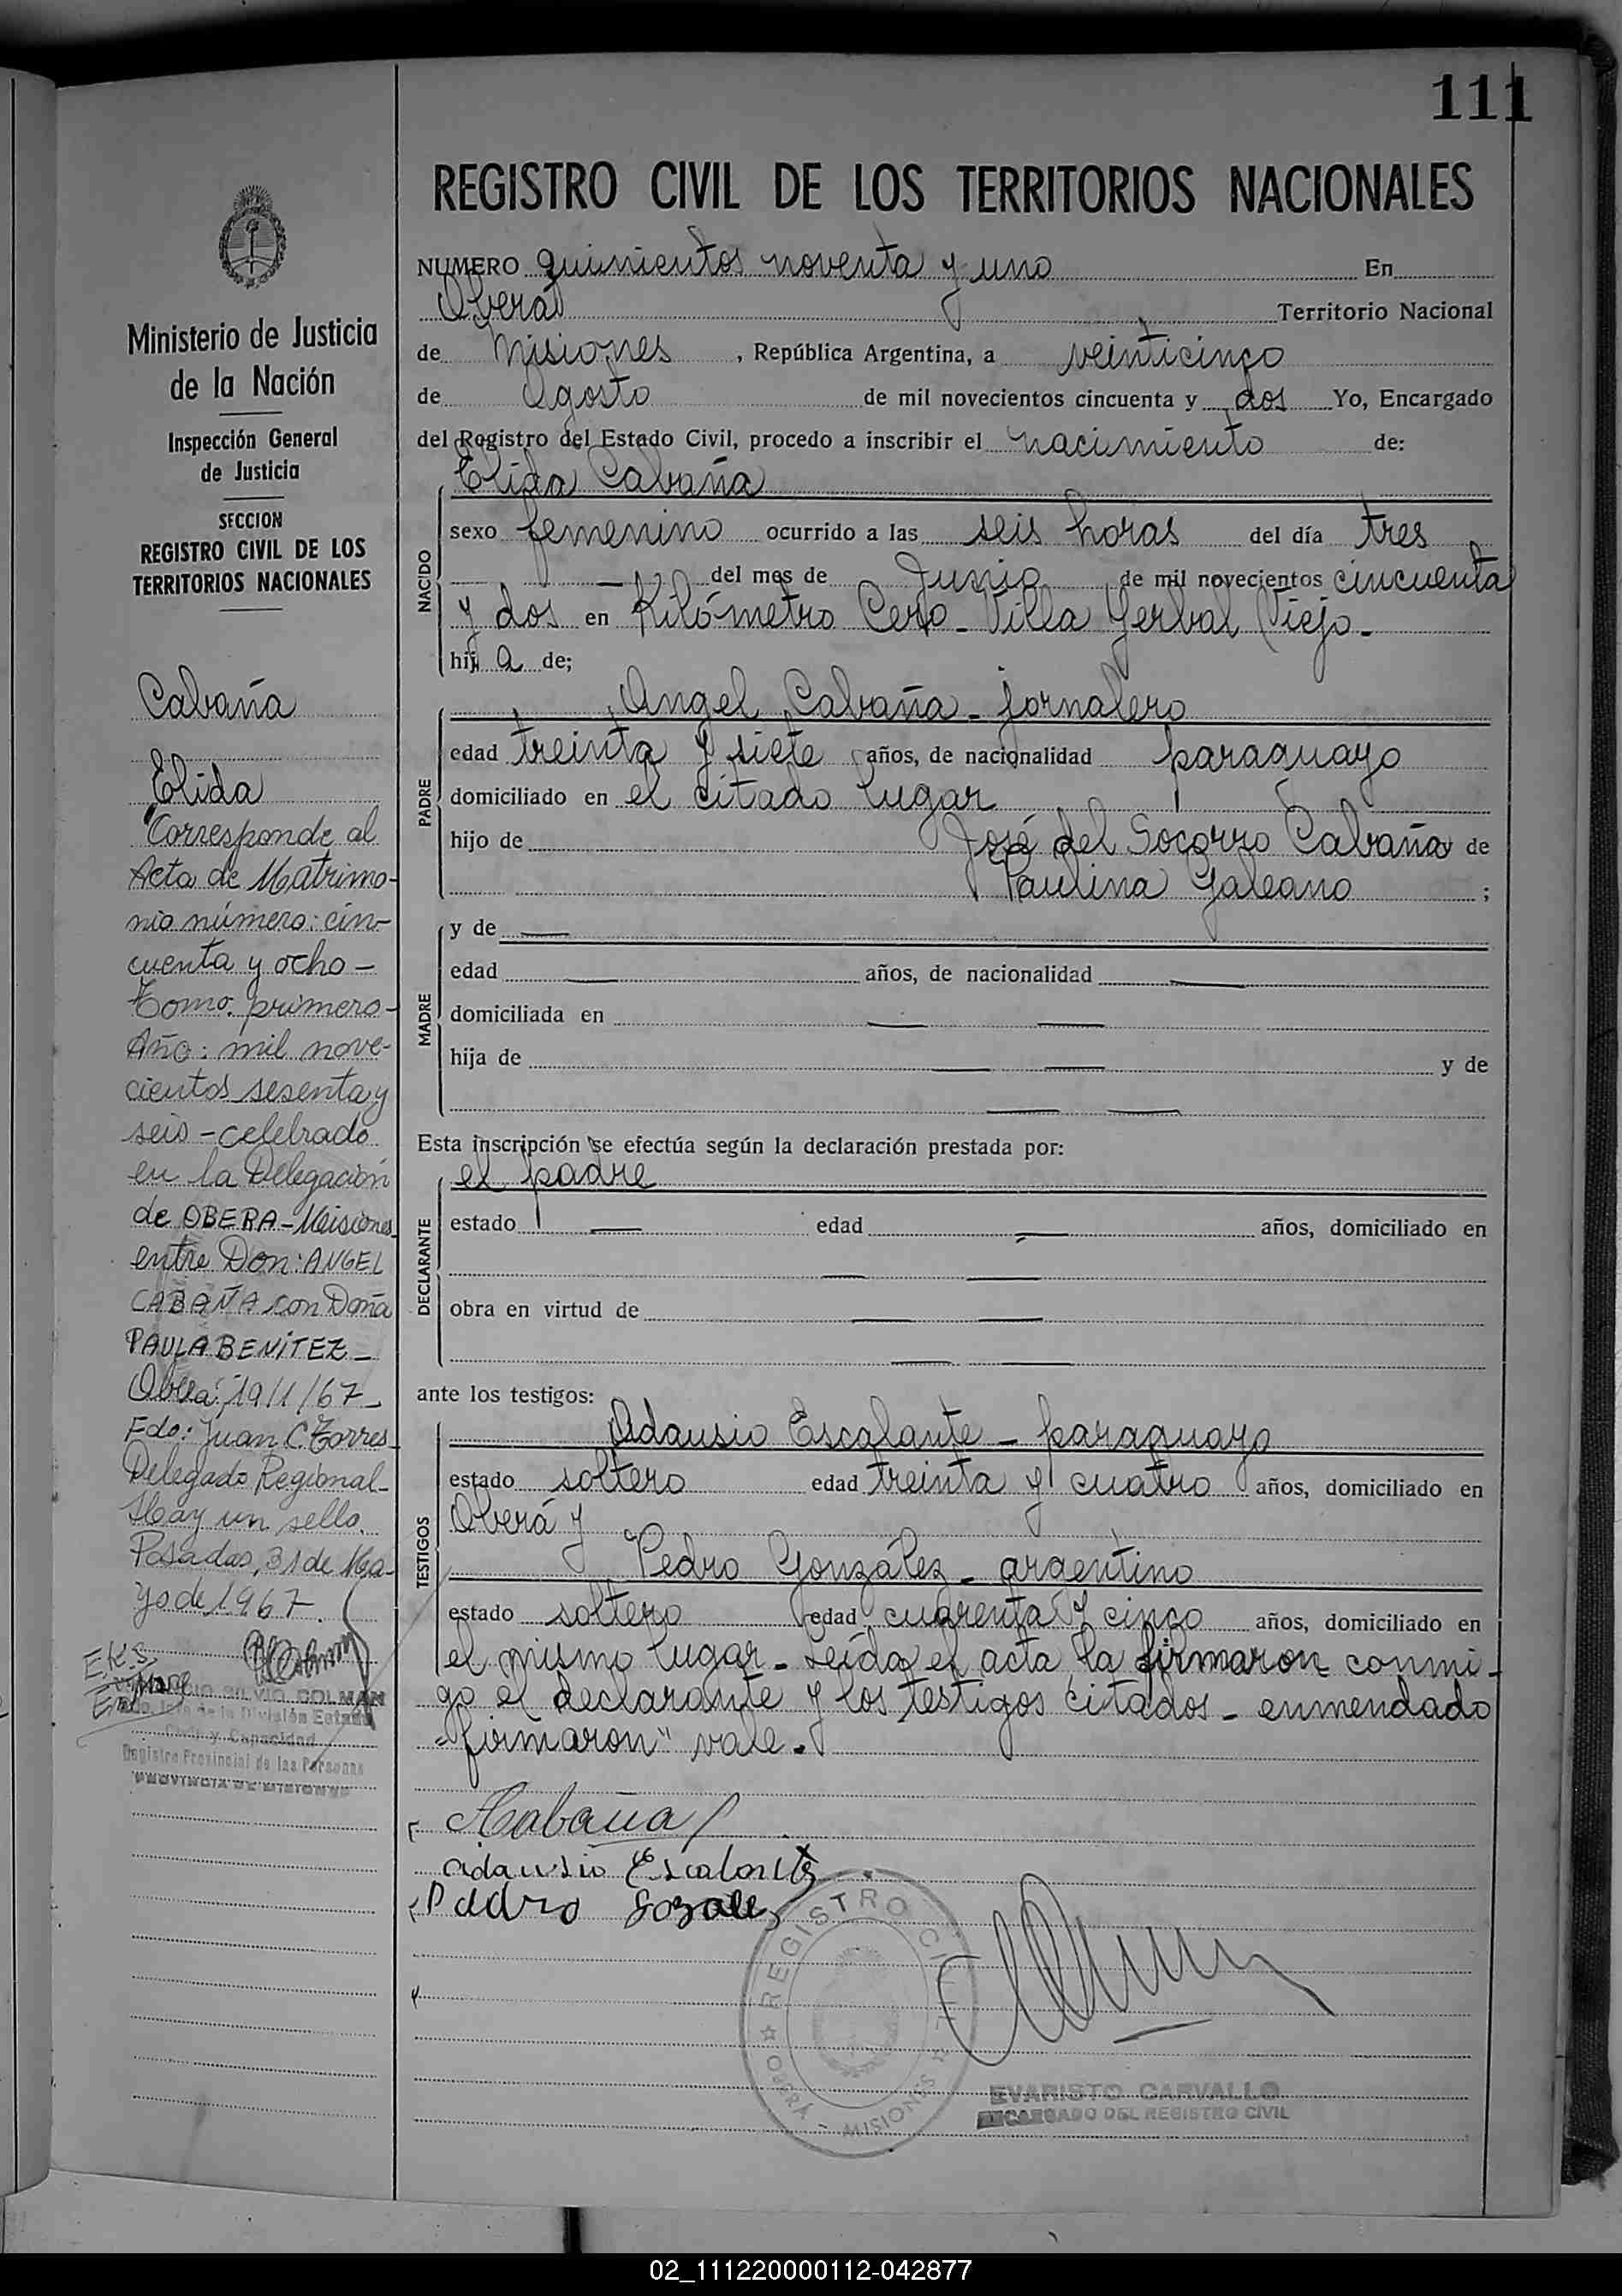 111
REGISTRO CIVIL DE LOS TERRITORIOS NACIONALES
NUMERO quinientos noventa y uno En
Oberá Territorio Nacional
de Misiones, República Argentina, a veinticinco
de Agosto de mil novecientos cincuenta y dos Yo, Encargado
del Registro del Estado Civil, procedo a inscribir el nacimiento de:
Elida Cabaña
NACIDO
sexo femenino ocurrido a las seis horas del día tres
— — del mes de Junio de mil novecientos cincuenta
y dos en Kilómetro Cero - Villa Yerbal Viejo.-
hij a de;
PADRE
Angel Cabaña - jornalero
edad treinta y siete años, de nacionalidad paraguayo
domiciliado en el citado lugar
hijo de José del Socorro Cabaña y de
Paulina Galeano ;
MADRE
y de —
edad — años, de nacionalidad —
domiciliada en — —
hija de — — y de
— —
Esta inscripción se efectúa según la declaración prestada por:
DECLARANTE
el padre
estado — edad — años, domiciliado en
— —
obra en virtud de — —
— —
ante los testigos:
TESTIGOS
Adausio Escalante - paraguayo
estado soltero edad treinta y cuatro años, domiciliado en
Oberá y
Pedro González - argentino
estado soltero edad cuarenta y cinco años, domiciliado en
el mismo lugar - Leída el acta, la firmaron conmi-
go el declarante y los testigos citados - enmendado
"firmaron" vale.
ACabaña
adausio Escalante
Padro Gozalez
REGISTRO CIVIL
OBERÁ - MISIONES
EVARISTO CARVALLO
ENCARGADO DEL REGISTRO CIVIL
Ministerio de Justicia
de la Nación
Inspección General
de Justicia
SECCION
REGISTRO CIVIL DE LOS
TERRITORIOS NACIONALES
Cabaña
Elida
"Corresponde al
Acta de Matrimo-
nio número: cin-
cuenta y ocho -
Tomo: primero -
Año: mil nove-
cientos sesenta y
seis - celebrado
en la Delegación
de OBERA - Misiones
entre Don: ANGEL
CABAÑA con Doña
PAULA BENITEZ -
Oberá: 19/1/67 -
Fdo: Juan C. Torres -
Delegado Regional -
Hay un sello.
Posadas, 31 de Ma-
yo de 1967.
SILVIO COLMAN
de la División Estado
Civil y Capacidad
Registro Provincial de las Personas
PROVINCIA DE MISIONES
02_111220000112-042877